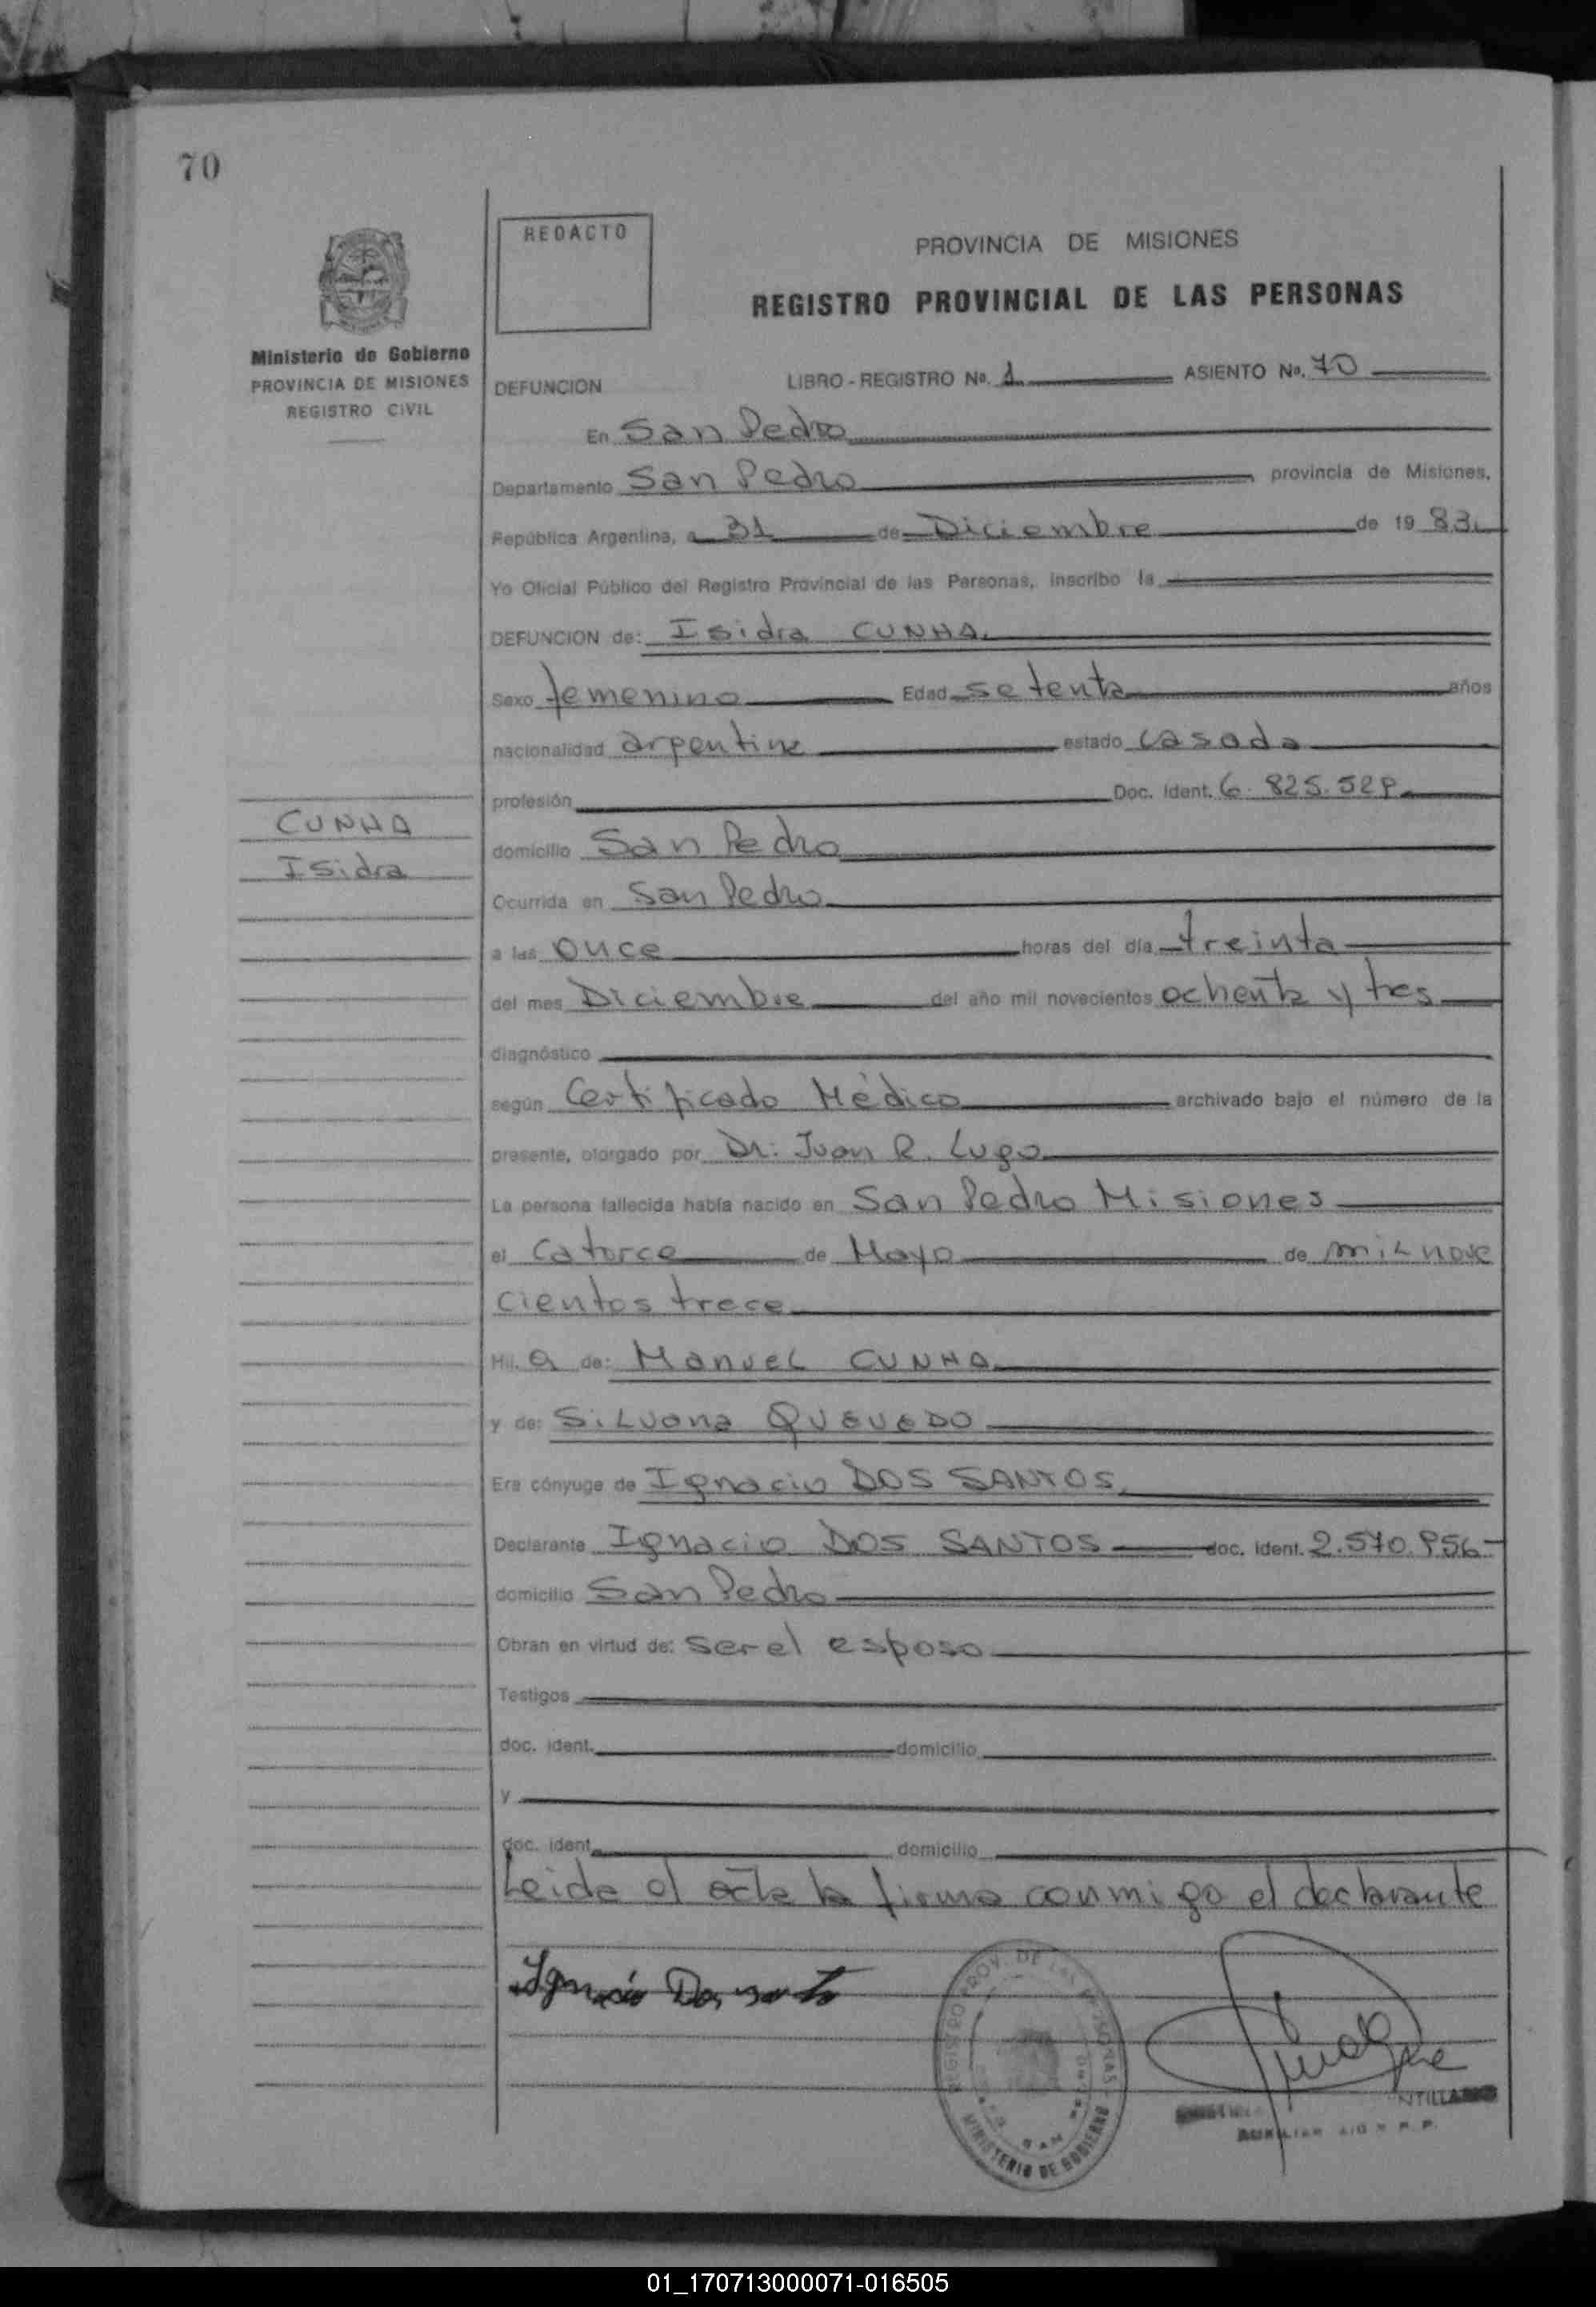 70
REDACTO
PROVINCIA DE MISIONES
REGISTRO PROVINCIAL DE LAS PERSONAS
Ministerio de Gobierno
PROVINCIA DE MISIONES
REGISTRO CIVIL
DEFUNCION LIBRO - REGISTRO Nº. 1 ASIENTO Nº. 70
En San Pedro
Departamento San Pedro provincia de Misiones,
República Argentina, a 31 de Diciembre de 19 83
Yo Oficial Público del Registro Provincial de las Personas, inscribo la
DEFUNCION de: Isidra CUNHA
Sexo femenino Edad setenta años
nacionalidad argentina estado casada
profesión Doc. Ident. 6.825.529
CUNHA
Isidra
domicilio San Pedro
Ocurrida en San Pedro
a las once horas del día treinta
del mes Diciembre del año mil novecientos ochenta y tres
diagnóstico
según Certificado Médico archivado bajo el número de la
presente, otorgado por Dr: Juan R. Lugo
La persona fallecida había nacido en San Pedro Misiones
el catorce de Mayo de mil nove
cientos trece
Hij. a de: Manuel CUNHA
y de: Silvana QUEVEDO
Era cónyuge de Ignacio DOS SANTOS
Declarante Ignacio DOS SANTOS doc. ident. 2.570.956
domicilio San Pedro
Obran en virtud de: ser el esposo
Testigos
doc. ident. domicilio
y
doc. ident. domicilio
Leida el acta la firma conmigo el declarante
Ignacio Dos
REGISTRO PROV. DE LAS PERSONAS
MINISTERIO DE GOBIERNO
AUXILIAR
01_170713000071-016505